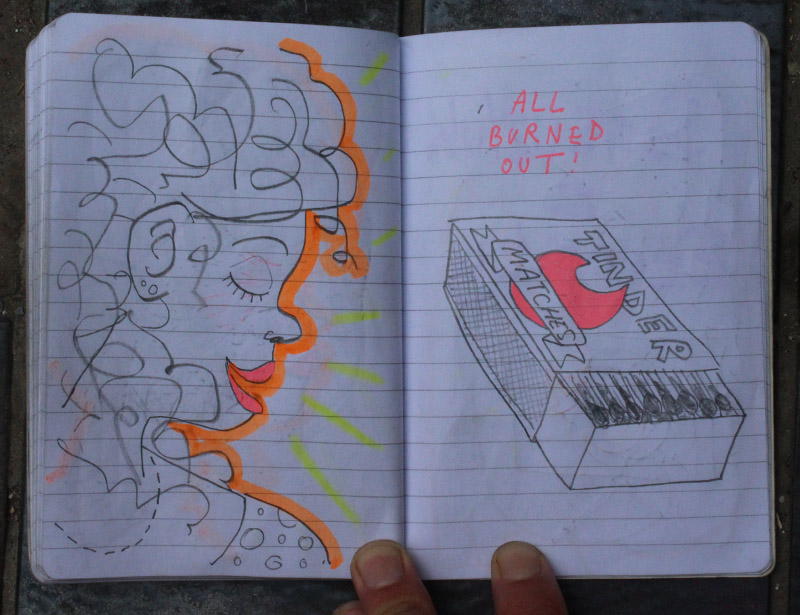 ALL
BURNED
OUT!
TINDER
MATCHES